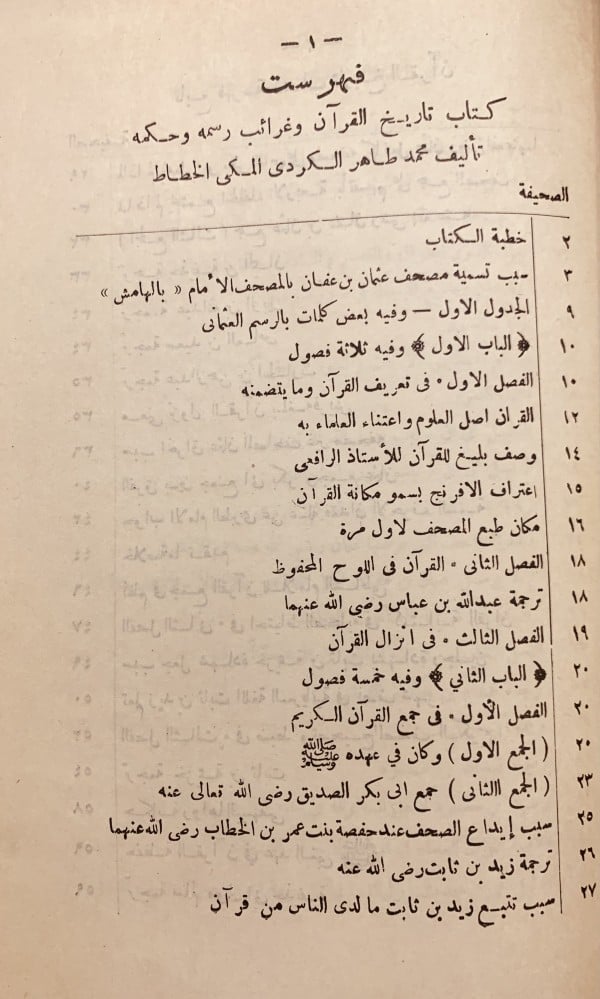 — ١ —
فهرست
كتاب تاريخ القرآن وغرائب رسمه وحكمه
تأليف محمد طاهر الكردى المكى الخطاط
الصحيفة
٢ خطبة الكتاب
٣ سبب تسمية مصحف عثمان بن عفان بالمصحف الامام « بالهامش »
٩ الجدول الاول — وفيه بعض كلمات بالرسم العثمانى
١٠ ﴿ الباب الاول ﴾ وفيه ثلاثة فصول
١٠ الفصل الاول ٠ فى تعريف القرآن وما يتضمنه
١٢ القران اصل العلوم واعتناء العلماء به
١٤ وصف بليغ للقرآن للأستاذ الرافعى
١٥ اعتراف الافرنج بسمو مكانة القرآن
١٦ مكان طبع المصحف لاول مرة
١٨ الفصل الثانى ٠ القرآن فى اللوح المحفوظ
١٨ ترجمة عبدالله بن عباس رضي الله عنهما
١٩ الفصل الثالث ٠ فى انزال القرآن
٢٠ ﴿ الباب الثاني ﴾ وفيه خمسة فصول
٢٠ الفصل الأول ٠ فى جمع القرآن الكريم
٢٠ ( الجمع الاول ) وكان في عهده ﷺ
٢٣ ( الجمع االثانى ) جمع ابى بكر الصديق رضى الله تعالى عنه
٢٥ سبب إيداع الصحف عند حفصة بنت عمر بن الخطاب رضى الله عنهما
٢٦ ترجمة زيد بن ثابت رضى الله عنه
٢٧ سبب تتبع زيد بن ثابت ما لدى الناس من قرآن